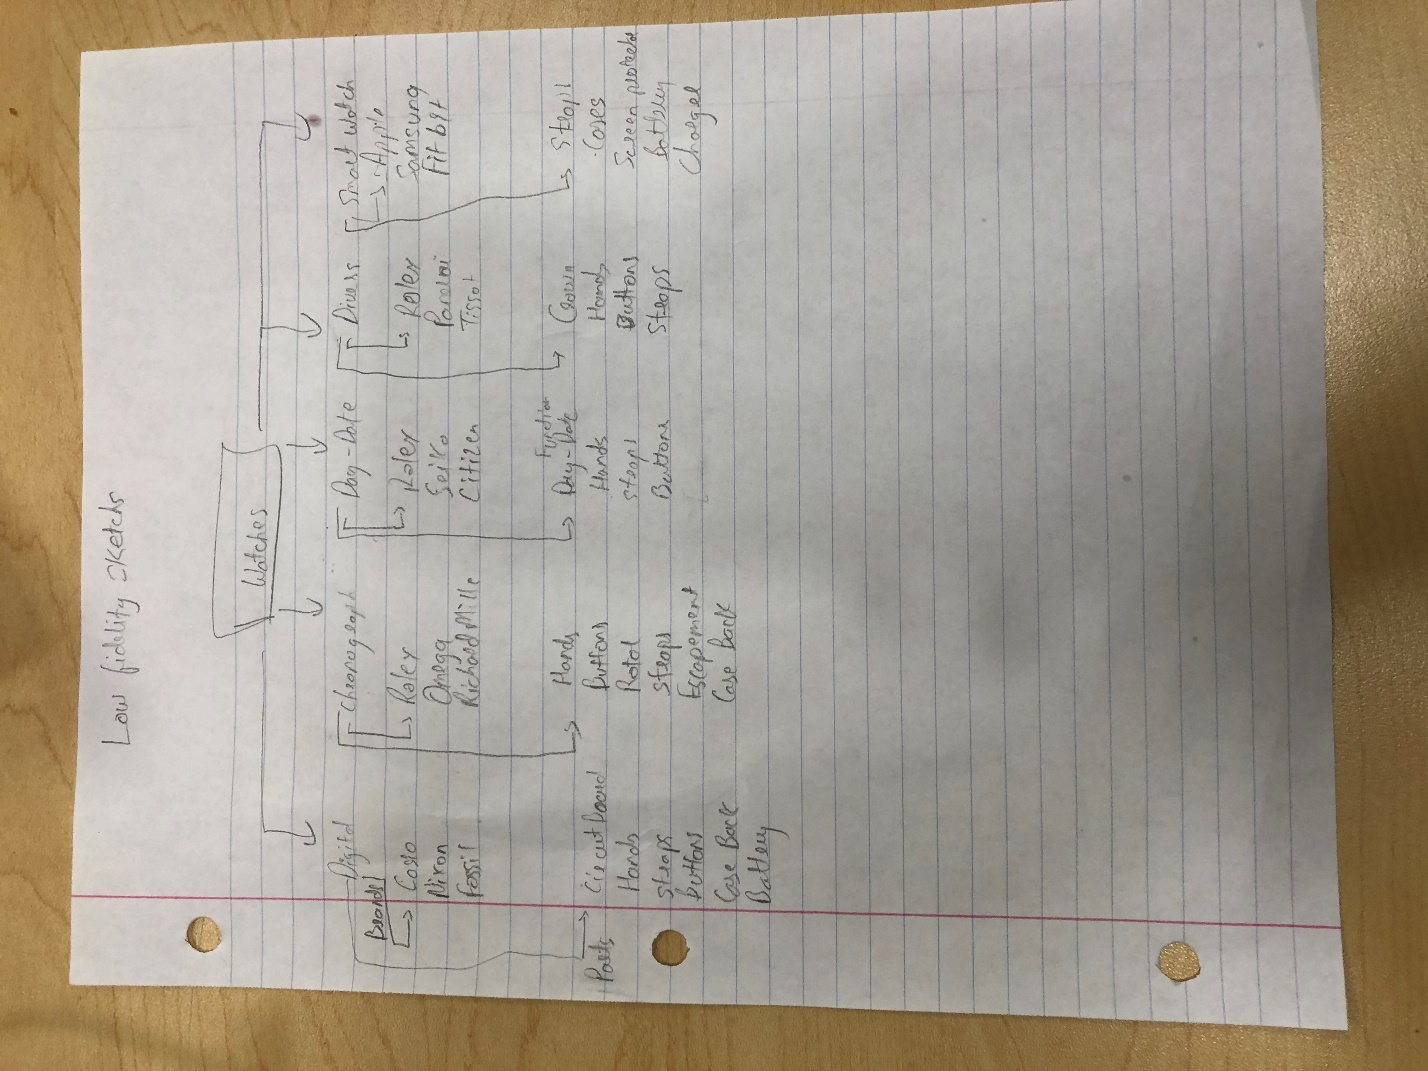 Low fidelity sketchs
Watches
Digital
Brands
Casio
Nixon
Fossil
Parts
Circut Board
Hands
Straps
Buttons
Case Back
Battery
Chronograph
Rolex
Omega
Richard Mille
Hands
Buttons
Straps
Escapement
Case Back
Day-Date
Rolex
Seiko
Citizen
Function
Day-Date
Hands
Straps
Buttons
Divers
Rolex
Panerai
Tissot
Crown
Hands
Buttons
Straps
Smart Watch
Apple
Samsung
Fitbit
Straps
Cases
Screen protector
Battery
Charger